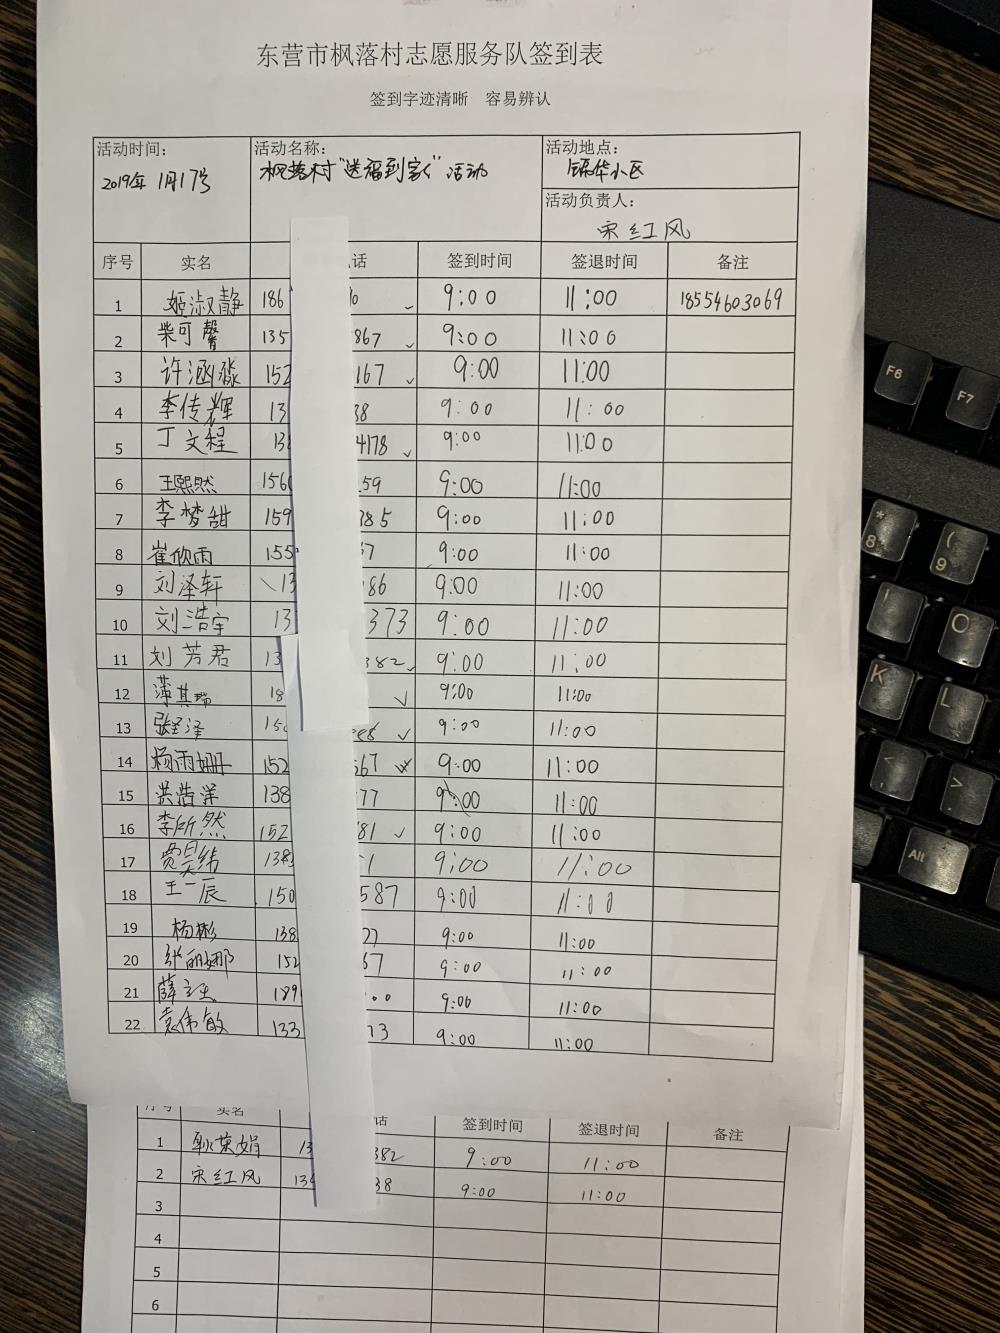 东营市枫落村志愿服务队签到表
签到字迹清晰 容易辨认
活动时间: 活动名称: 活动地点:
2019年1月17号 枫落村"送福到家"活动 锦华小区
活动负责人:
宋红风
序号 实名 话 签到时间 签退时间 备注
1 姬淑静 186 0 9:00 11:00 18554603069
2 柴可馨 135 867 9:00 11:00
3 许涵淼 152 167 9:00 11:00
4 李传辉 13 38 9:00 11:00
5 丁文程 138 4178 9:00 11:00
6 王熙然 156 59 9:00 11:00
7 李梦甜 159 385 9:00 11:00
8 崔欣雨 155 37 9:00 11:00
9 刘泽轩 13 86 9:00 11:00
10 刘浩宇 13 373 9:00 11:00
11 刘芳君 13 382 9:00 11:00
12 薄其瑞 18 9:00 11:00
13 张圣泽 150 9:00 11:00
14 杨雨姗 152 567 9:00 11:00
15 洪浩洋 138 77 9:00 11:00
16 李所然 152 81 9:00 11:00
17 贾昊纬 138 1 9:00 11:00
18 王一辰 150 587 9:00 11:00
19 杨彬 138 77 9:00 11:00
20 张丽娜 152 67 9:00 11:00
21 薛 189 00 9:00 11:00
22 袁伟敏 133 73 9:00 11:00
序号 实名 话 签到时间 签退时间 备注
1 耿荣娟 13 382 9:00 11:00
2 宋红风 134 38 9:00 11:00
3
4
5
6
F6
F7
*
8
(
9
I
O
K
L
<
,
>
.
Alt